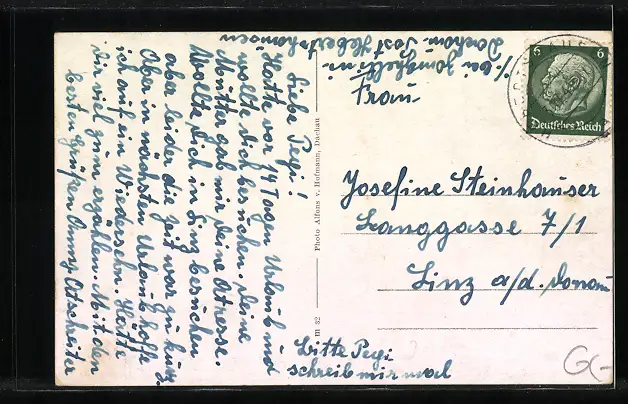 Liebe Pepi!
Hatte vor 14 Tagen Urlaub und
wollte dich besuchen. Deine
Mutter gab mir deine Adresse.
Wollte dich in Linz besuchen
aber leider die Zeit war zu kurz.
Aber in nächsten Urlaub hoffe
ich auf ein Wiedersehn. Hätte
dir viel zum erzählen. Mit den
besten Grüßen
Bitte Pepi
schreib mir mal
Photo Alfons v. Hofmann, Dachau
m 32
bei
Dachau Post Hebertshausen
Frau
Josefine Steinhauser
Langgasse 7/1
Linz a/d. Donau
6 6
Deutsches Reich
G-